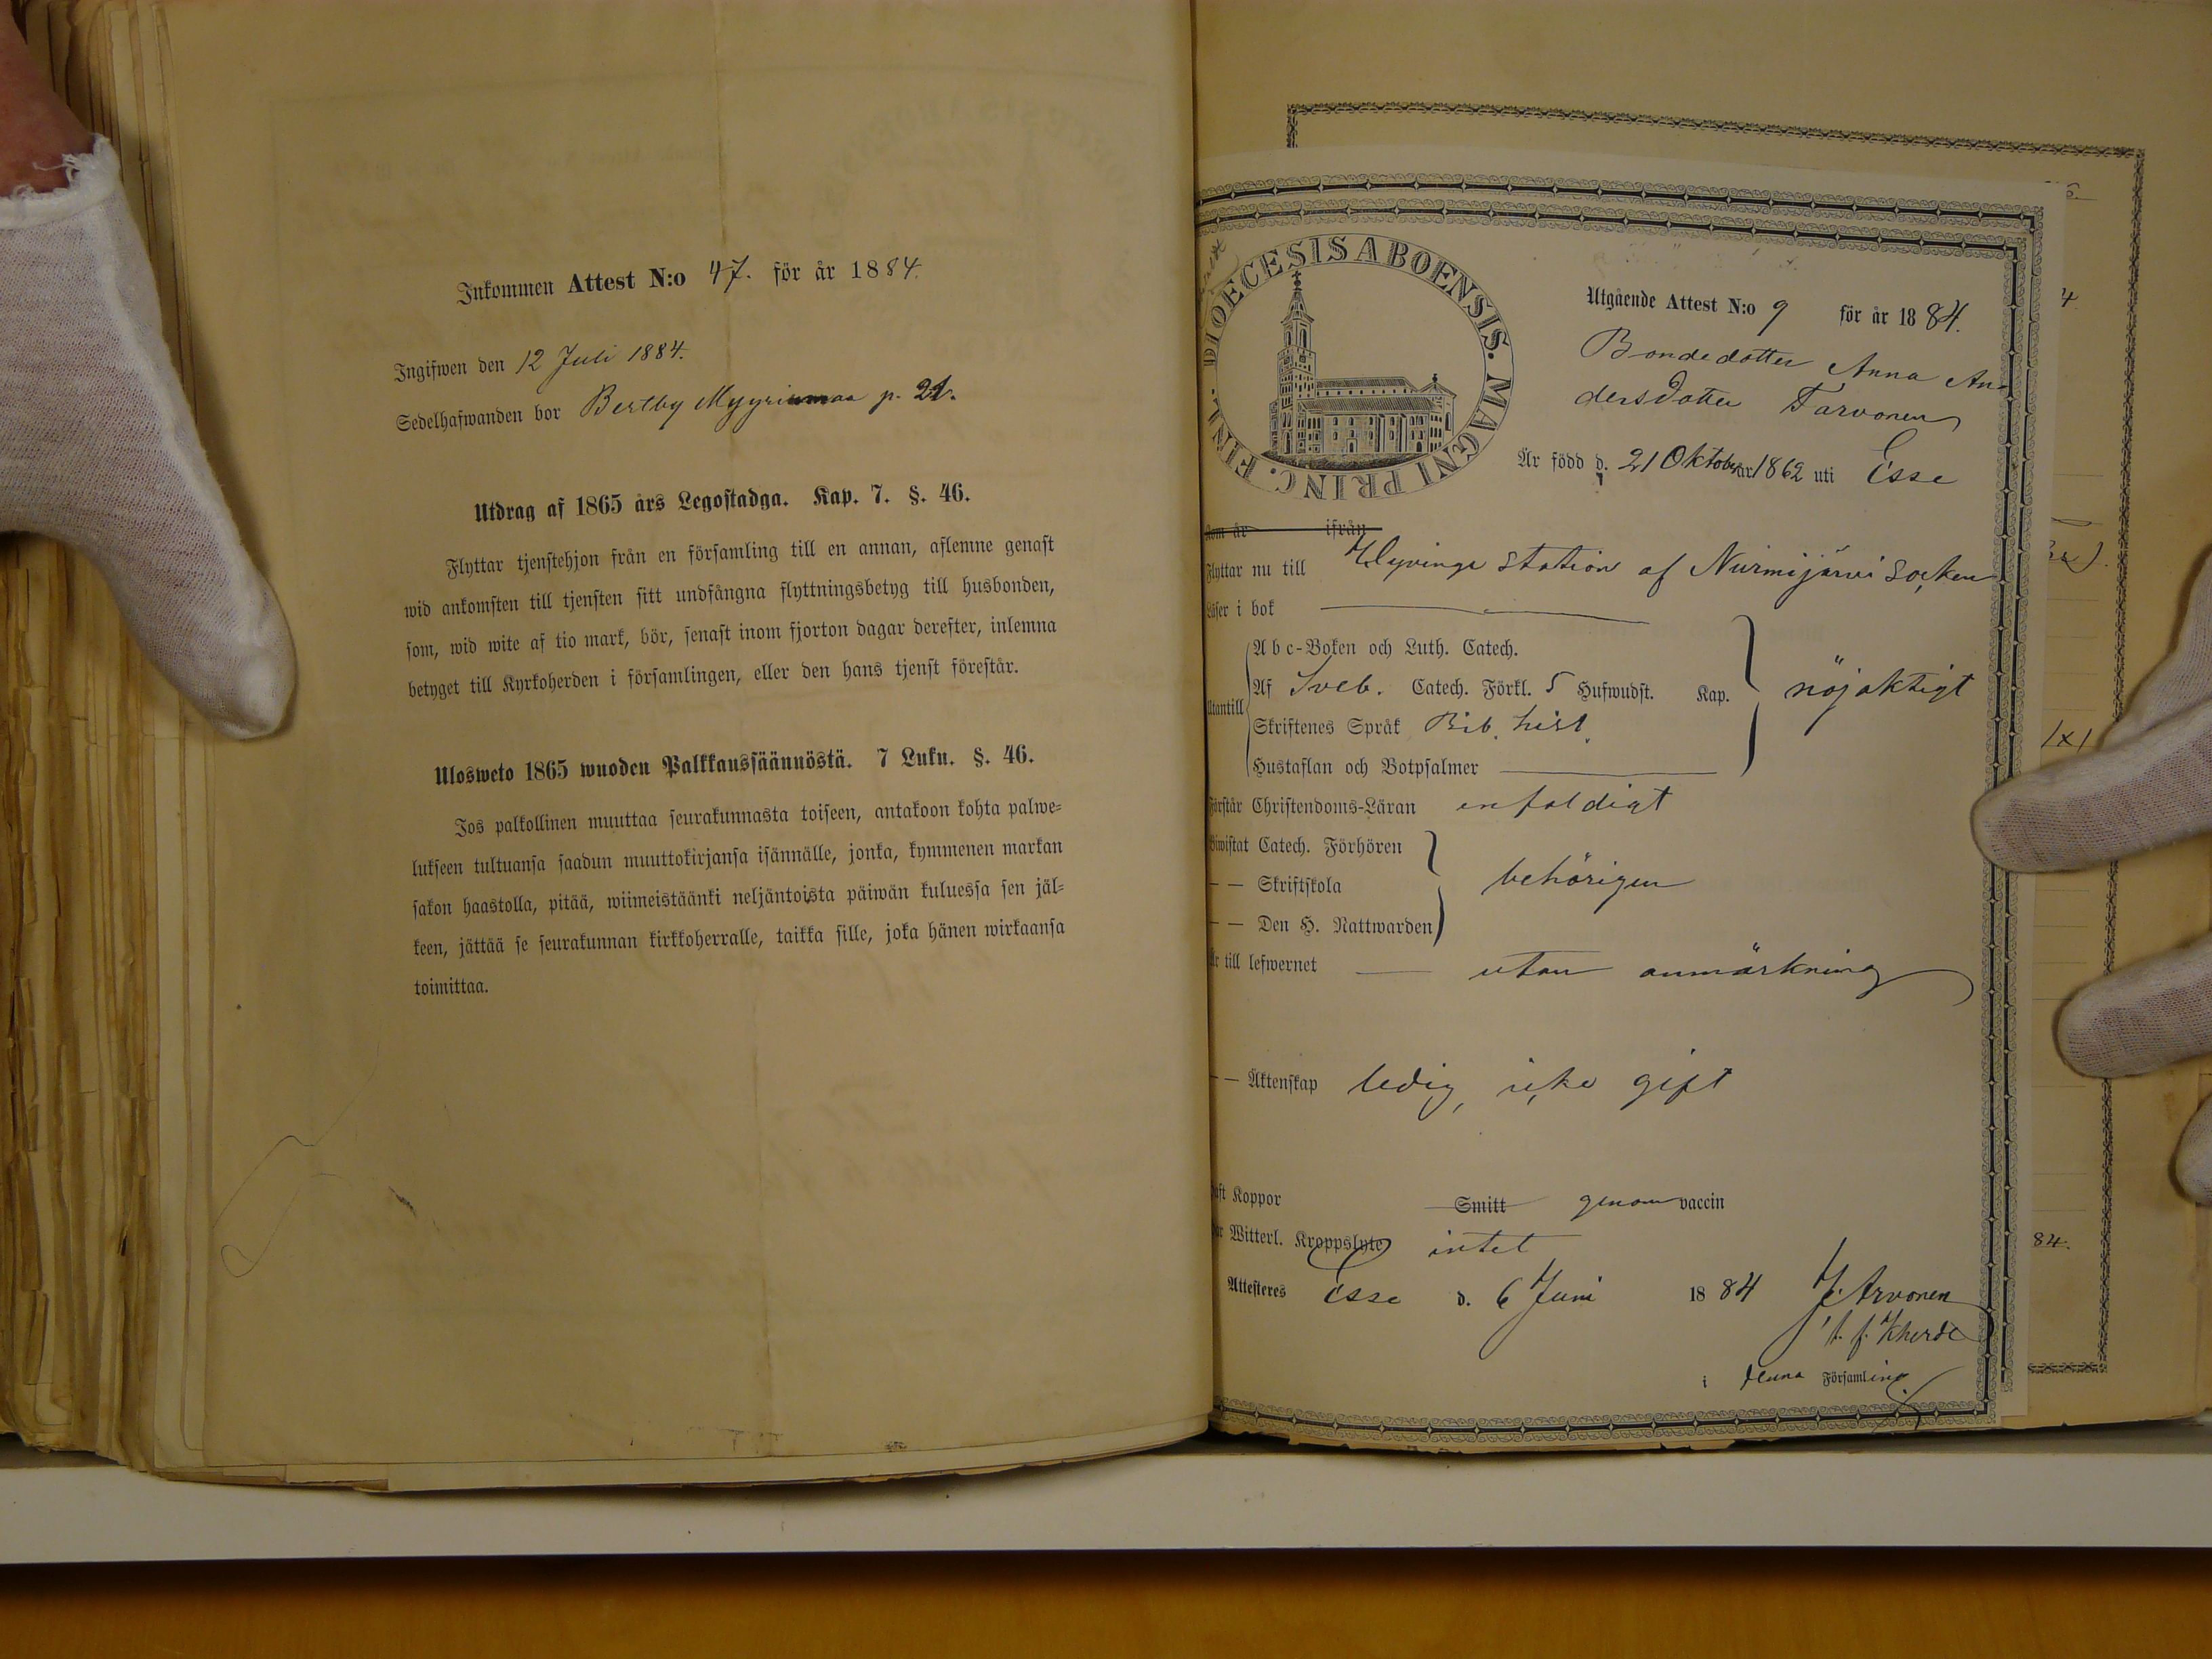 Inkommen Attest N:o 47. för år 1884.
Ingifwen den 12 Juli 1884.
Sedelhafwanden bor Bertby Myyrinmaa p. 21.
Utdrag af 1865 års Legostadga. Kap. 7. §. 46.
Flyttar tjenstehjon från en församling till en annan, aflemne genast
wid ankomsten till tjensten sitt undfångna flyttningsbetyg till husbonden,
som, wid wite af tio mark, bör, senast inom fjorton dagar derefter, inlemna
betyget till Kyrkoherden i församlingen, eller den hans tjenst förestår.
Ulosweto 1865 wuoden Palkkaussäännöstä. 7 Luku. §. 46.
Jos palkollinen muuttaa seurakunnasta toiseen, antakoon kohta palwe-
lukseen tultuansa saadun muuttokirjansa isännälle, jonka, kymmenen markan
sakon haastolla, pitää, wiimeistäänki neljäntoista päiwän kuluessa sen jäl-
keen, jättää se seurakunnan kirkkoherralle, taikka sille, joka hänen wirkaansa
toimittaa.
DIOECESIS ABOENSIS. MAGNI PRINC. FINL.
Utgående Attest N:o 9 för år 1884.
Bondedotter Anna An
dersdotter Tarvonen
Är född d. 21 Oktober år 1862 uti Esse
Kom år ifrån
Flyttar nu till Hyvinge station af Nurmijärvi socken
Läser i bok
Abc-Boken och Luth. Catech.
Utantill
Af Sveb. Catech. Förkl. 5 Hufwudst. Kap. nöjaktigt
Skriftenes Språk Bib. hist.
Hustaflan och Botpsalmer
Förstår Christendoms-Läran enfaldigt
Biwistat Catech. Förhören
— — Skriftskola behörigen
— — Den H. Nattwarden
Är till lefwernet utan anmärkning
— — Äktenskap ledig, icke gift
Haft Koppor Smitt genom vaccin
Har Witterl. Kroppslyte intet
Attesteres Esse d. 6 Juni 1884 J. Arvonen
t. f. Kherde
i denna Församling.
84.